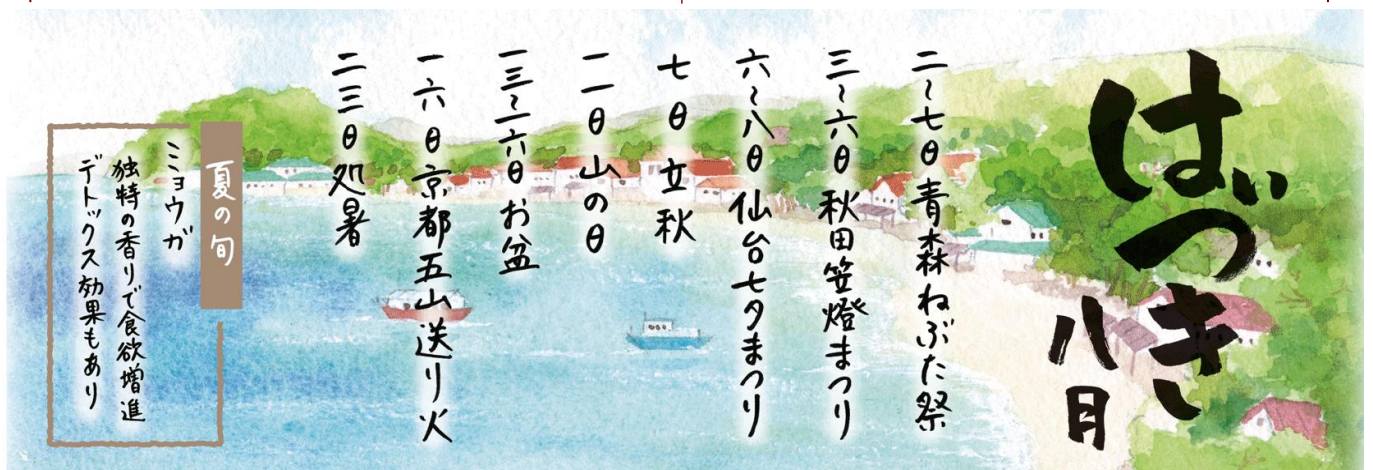 はづき
八月
二〜七日青森ねぶた祭
三〜六日秋田笠燈まつり
六〜八日仙台七夕まつり
七日立秋
一一日山の日
一三〜一六日お盆
一六日京都五山送り火
二三日処暑
夏の旬
ミョウガ
独特の香りで食欲増進
デトックス効果もあり